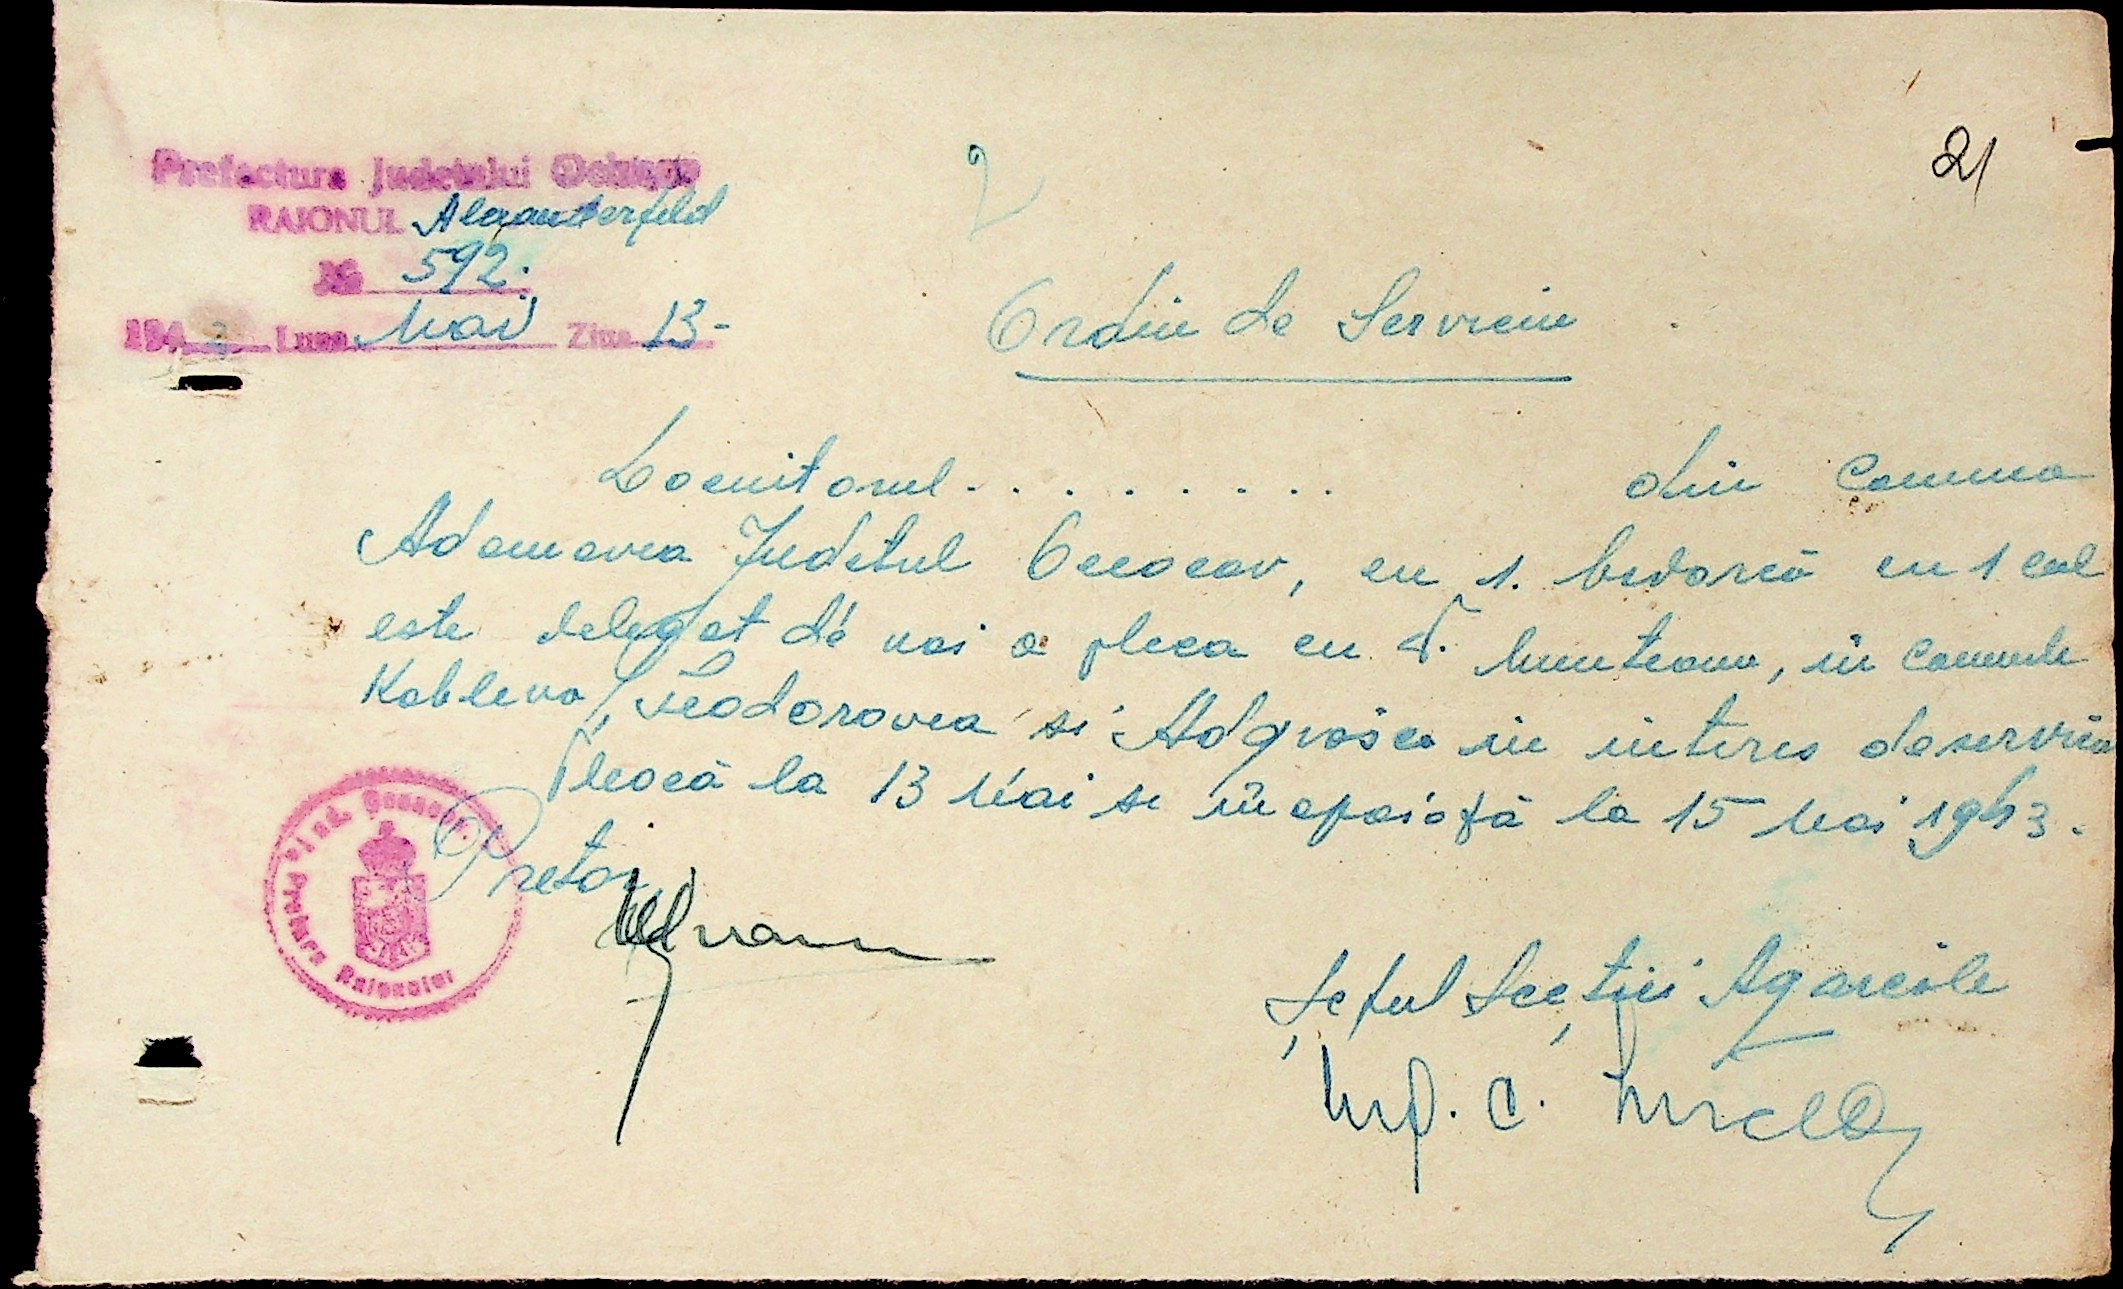 21
2
Prefectura Județului Oceacov
RAIONUL Alexanderfeld
№ 592.
1943 Luna Mai Ziua 13-
Ordin de Serviciu
Locuitorul . . . . . . . . din comuna
Adamovca Judetul Oceacov, cu 1. bedarcă cu 1 cal
este delegat de noi a pleca cu D. Munteanu, in comunele
Koblevo, Feodorovca si Adgiasca in interes de serviciu
Pleacă la 13 Mai si inapoiază la 15 Mai 1943.
Pretor
Pretura Raionului Jud. Oceacov
Șeful Secției Agricole